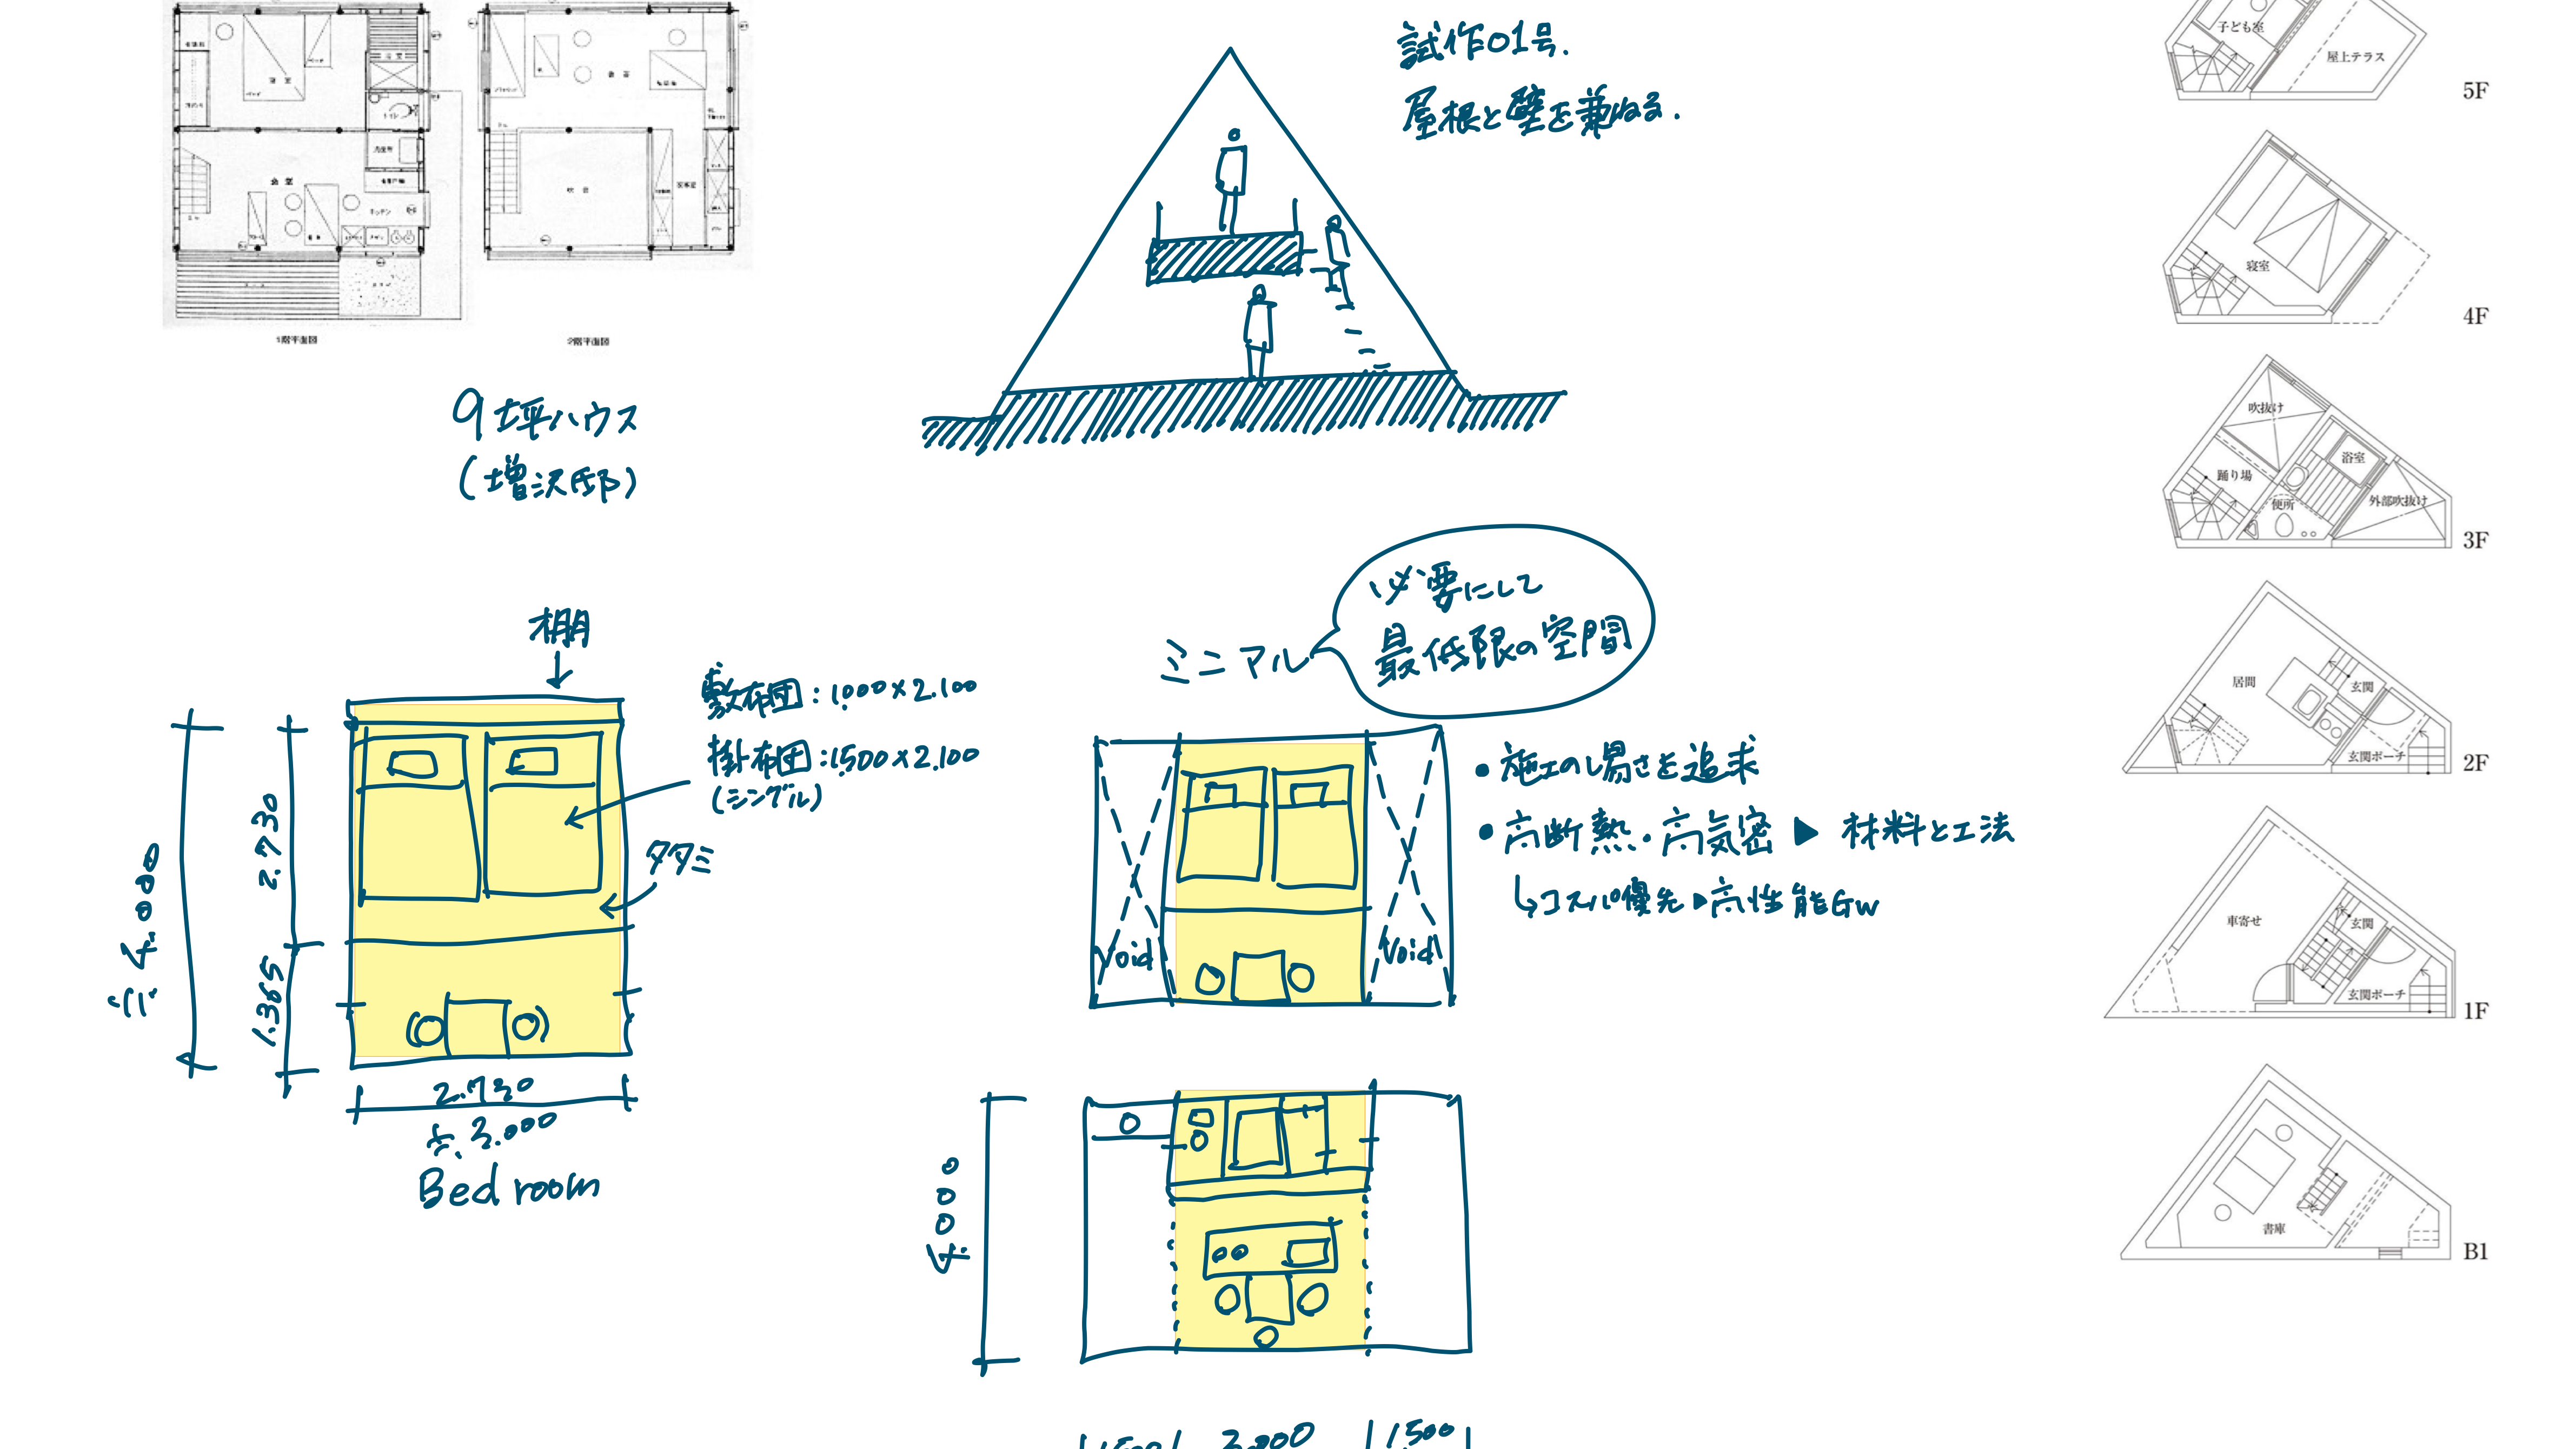 寝室
トイレ
洗面所
食堂
キッチン
1階平面図
吹抜
家事室
2階平面図
9坪ハウス
(増沢邸)
試作01号.
屋根と壁を兼ねる.
棚
敷布団:1,000×2,100
掛布団:1,500×2,100
(シングル)
タタミ
≒4.000
2.730
1.365
2.730
≒3.000
Bedroom
ミニマル
必要にして
最低限の空間
•施工の易さを追求
•高断熱・高気密▶材料と工法
↳コスパ優先▶高性能GW
Void
Void
4.000
1,500
3.000
1,500
子ども室
屋上テラス
5F
寝室
4F
吹抜け
浴室
踊り場
便所
外部吹抜け
3F
居間
玄関
玄関ポーチ
2F
車寄せ
玄関
玄関ポーチ
1F
書庫
B1